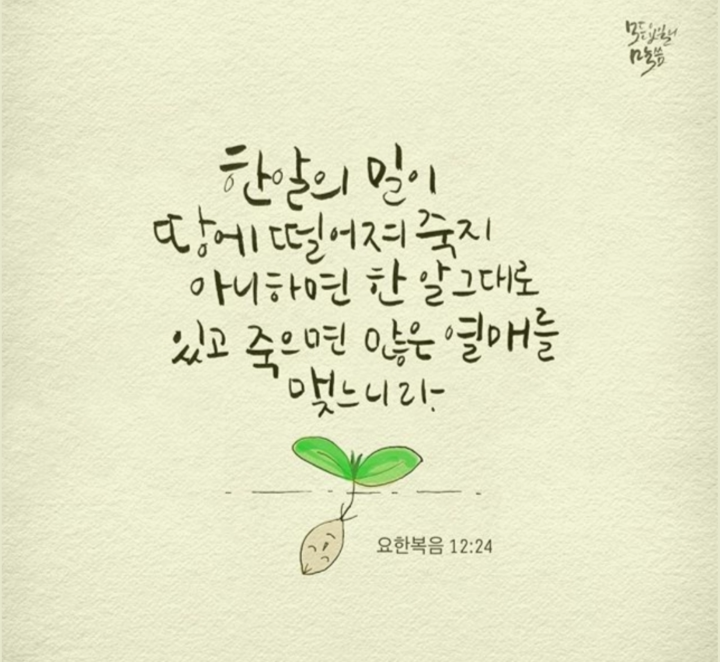 한알의 밀이
땅에 떨어져 죽지
아니하면 한 알 그대로
있고 죽으면 많은 열매를
맺느니라-
요한복음 12:24